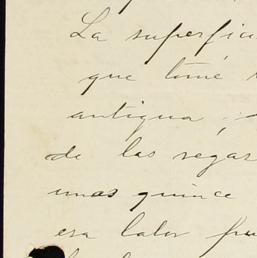 La superfici
que tomé
antigua ;
de las regas
unas quince
esa labor fru